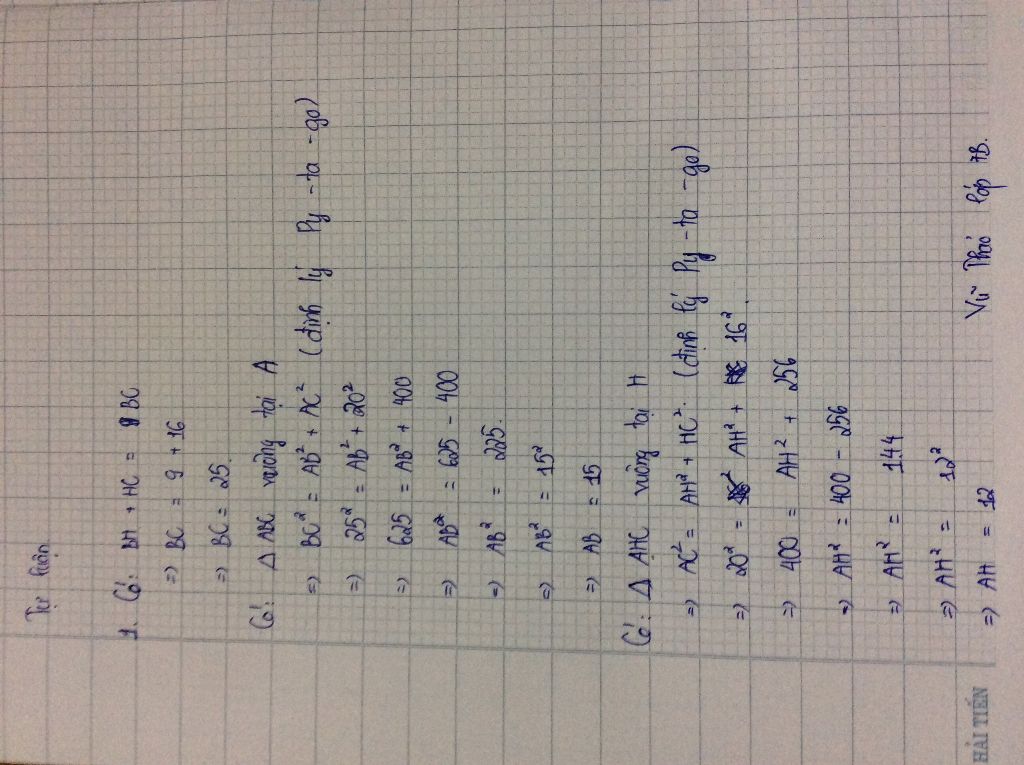 Tự luận
1. Có: BH + HC = BC
=> BC = 9 + 16
=> BC = 25.
Có: Δ ABC vuông tại A
=> BC² = AB² + AC² (định lý Py - ta - go)
=> 25² = AB² + 20²
=> 625 = AB² + 400
=> AB² = 625 - 400
=> AB² = 225.
=> AB² = 15²
=> AB = 15
Có: Δ AHC vuông tại H
=> AC² = AH² + HC². (định lý Py - ta - go)
=> 20² = AH² + 16².
=> 400 = AH² + 256
=> AH² = 400 - 256
=> AH² = 144
=> AH² = 12²
=> AH = 12
Vũ Thảo lớp 7B.
HẢI TIẾN